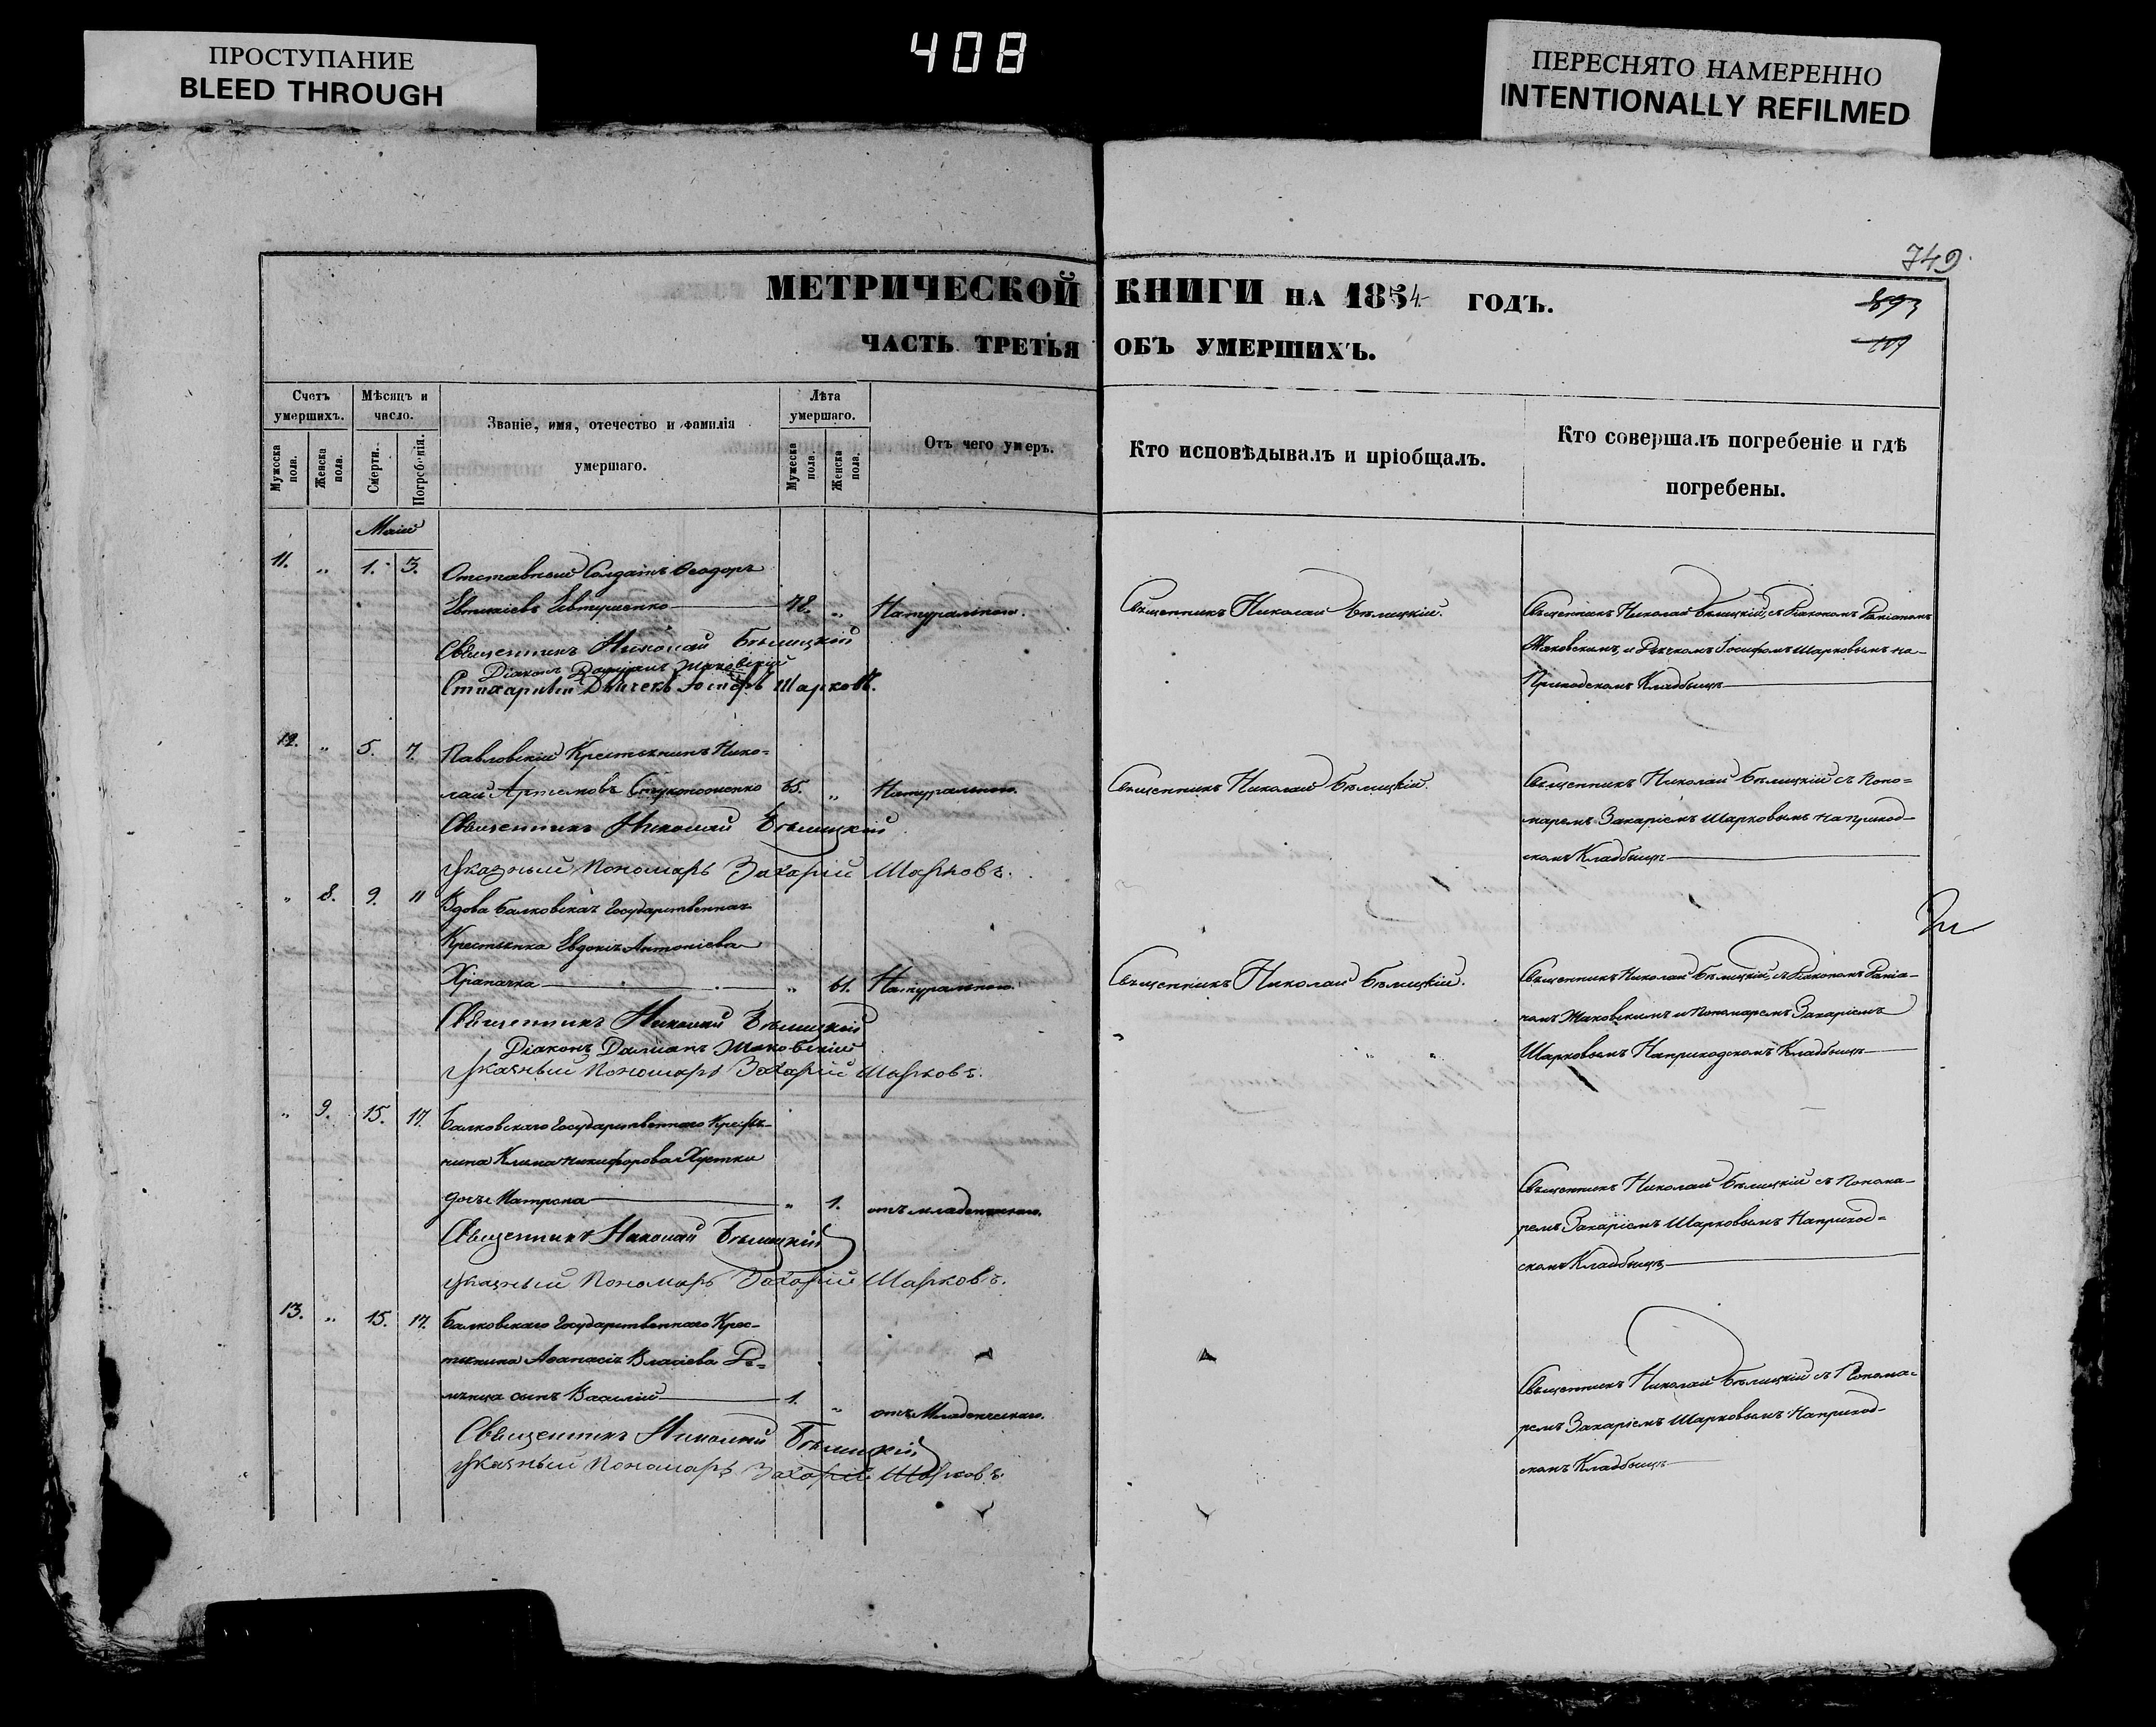 ПРОСТУПАНИЕ
BLEED THROUGH
408
ПЕРЕСНЯТО НАМЕРЕННО
INTENTIONALLY REFILMED
749
МЕТРИЧЕСКОЙ КНИГИ НА 1854 ГОДЪ.
893
ЧАСТЬ ТРЕТЬЯ ОБЪ УМЕРШИХЪ.
Счетъ умершихъ.
Мужеска пола.
Женска пола.
Мѣсяцъ и число.
Смерти.
Погребенія.
Званіе, имя, отечество и фамилія
умершаго.
Лѣта умершаго.
Мужеска пола.
Женска пола.
Отъ чего умеръ.
Кто исповѣдывалъ и пріобщалъ.
Кто совершалъ погребеніе и гдѣ
погребены.
Маій
11. „ 1. 3. Отставный Солдатъ Ѳеодоръ
Евтихіевъ Евтушенко 78. „ Натуральною.
Священникъ Николай Бѣлицкій.
Священникъ Николай Бѣлицкій, съ Діакономъ Даміаномъ
Маковскимъ, и Дьячкомъ Іосифомъ Шарковымъ на
Приходскомъ Кладбищѣ
Священникъ Николай Бѣлицкій
Діаконъ Даміанъ Маковскій
Стихарный Дьячекъ Іосифъ Шарковъ.
12. „ 5. 7. Павловскій Крестьянинъ Нико=
лай Артемовъ 65. „ Натуральною.
Священникъ Николай Бѣлицкій.
Священникъ Николай Бѣлицкій съ Поно=
маремъ Захаріемъ Шарковымъ на приход-
скомъ Кладбищѣ
Священникъ Николай Бѣлицкій
Указный Пономарь Захарій Шарковъ.
„ 8. 9. 11 Вдова Балковская Государственная
Крестьянка Евдокія Антоніева
Храпачка „ 61. Натуральною.
Священникъ Николай Бѣлицкій.
Священникъ Николай Бѣлицкій, съ Діакономъ Даміа-
номъ Маковскимъ и Пономаремъ Захаріемъ
Шарковымъ На приходскомъ Кладбищѣ
Священникъ Николай Бѣлицкій
Діаконъ Даміанъ Маковскій
Указный Пономарь Захарій Шарковъ.
„ 9. 15. 17. Балковскаго Государственнаго Крестья-
нина Клима Никифорова Хустки
дочь Матрона „ 1. отъ младенческаго.
Священникъ Николай Бѣлицкій съ Понома-
ремъ Захаріемъ Шарковымъ На приход=
скомъ Кладбищѣ
Священникъ Николай Бѣлицкій
Указный Пономарь Захарій Шарковъ.
13. „ 15. 17. Балковскаго Государственнаго Крес-
тьянина Аѳанасія Власіева
сынъ Василій 1. „ отъ Младенческаго.
Священникъ Николай Бѣлицкій съ Понома-
ремъ Захаріемъ Шарковымъ На приход-
скомъ Кладбищѣ
Священникъ Николай Бѣлицкій
Указный Пономарь Захарій Шарковъ.